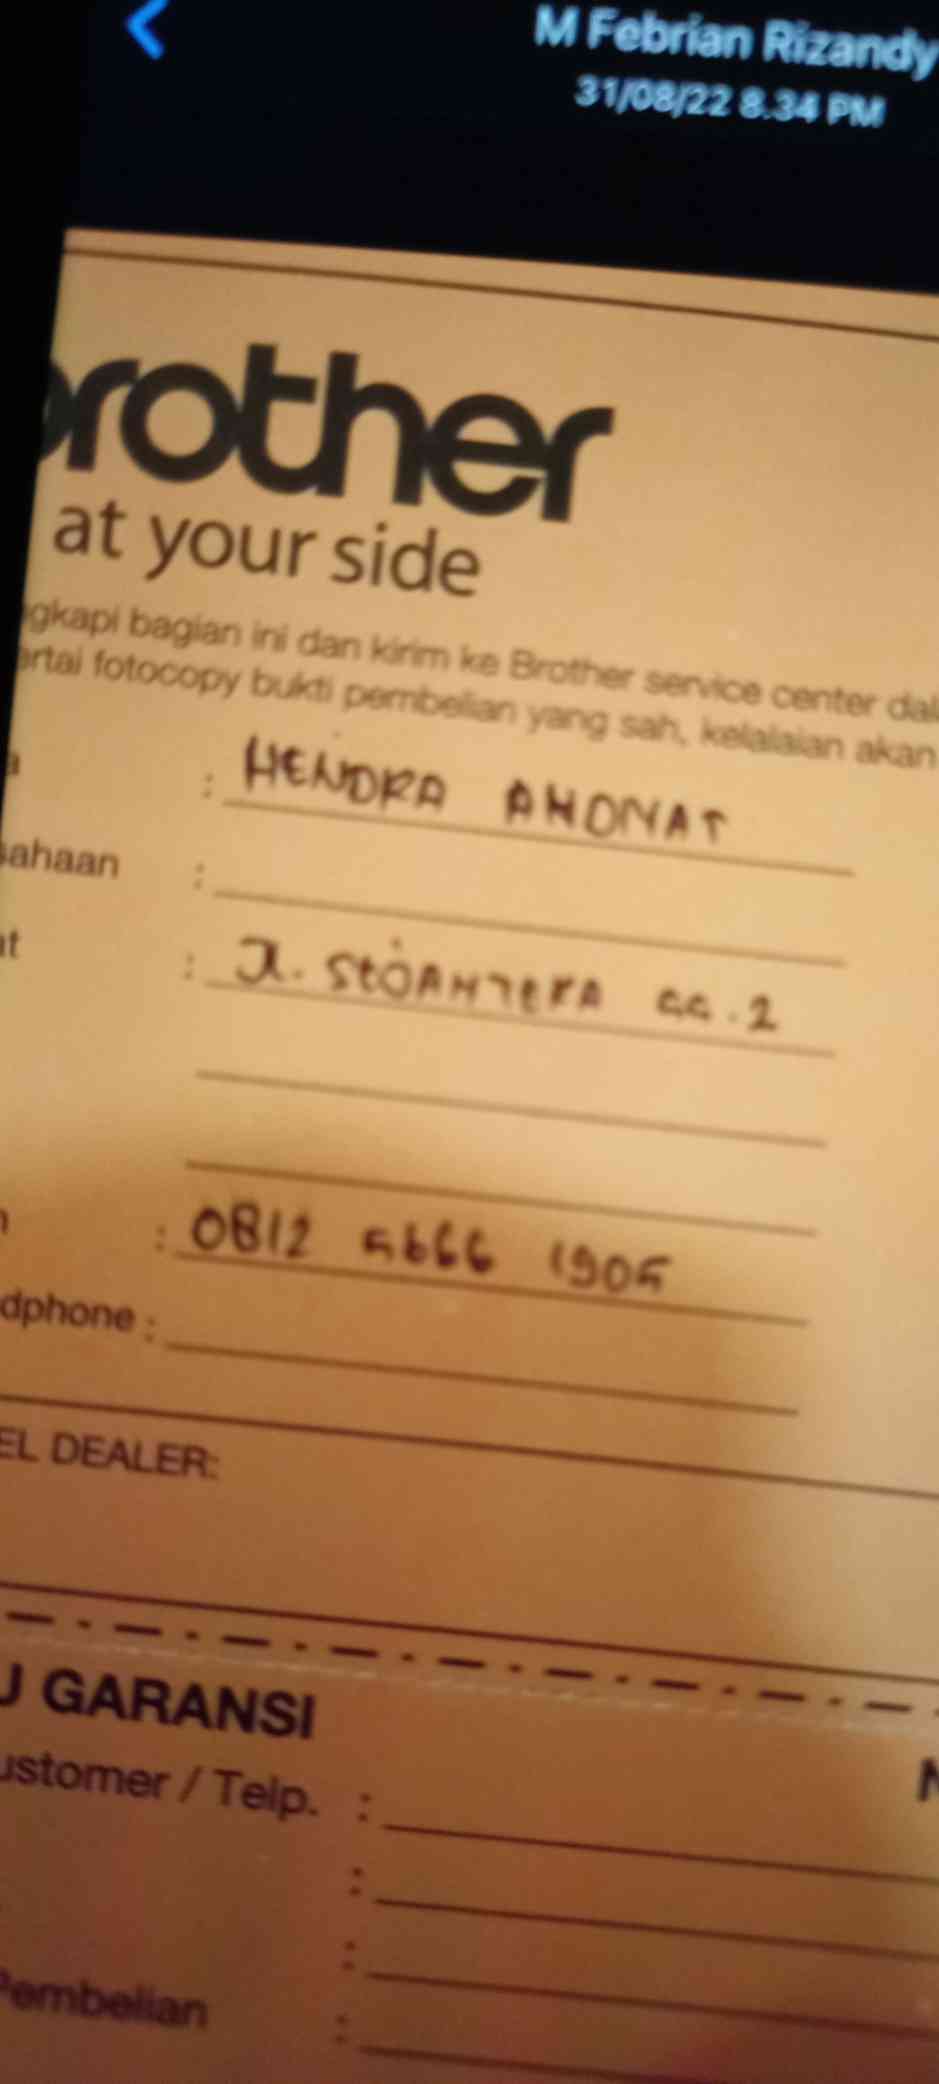 M Febrian Rizandy
31/08/22 8.34 PM
brother
at your side
gkapi bagian ini dan kirim ke Brother service center dal
ertai fotocopy bukti pembelian yang sah, kelalaian akan
a : HENDRA
sahaan :
at : Jl. 2
n : 0812 5666 1905
dphone :
EL DEALER:
U GARANSI
ustomer / Telp. :
:
:
Pembelian :